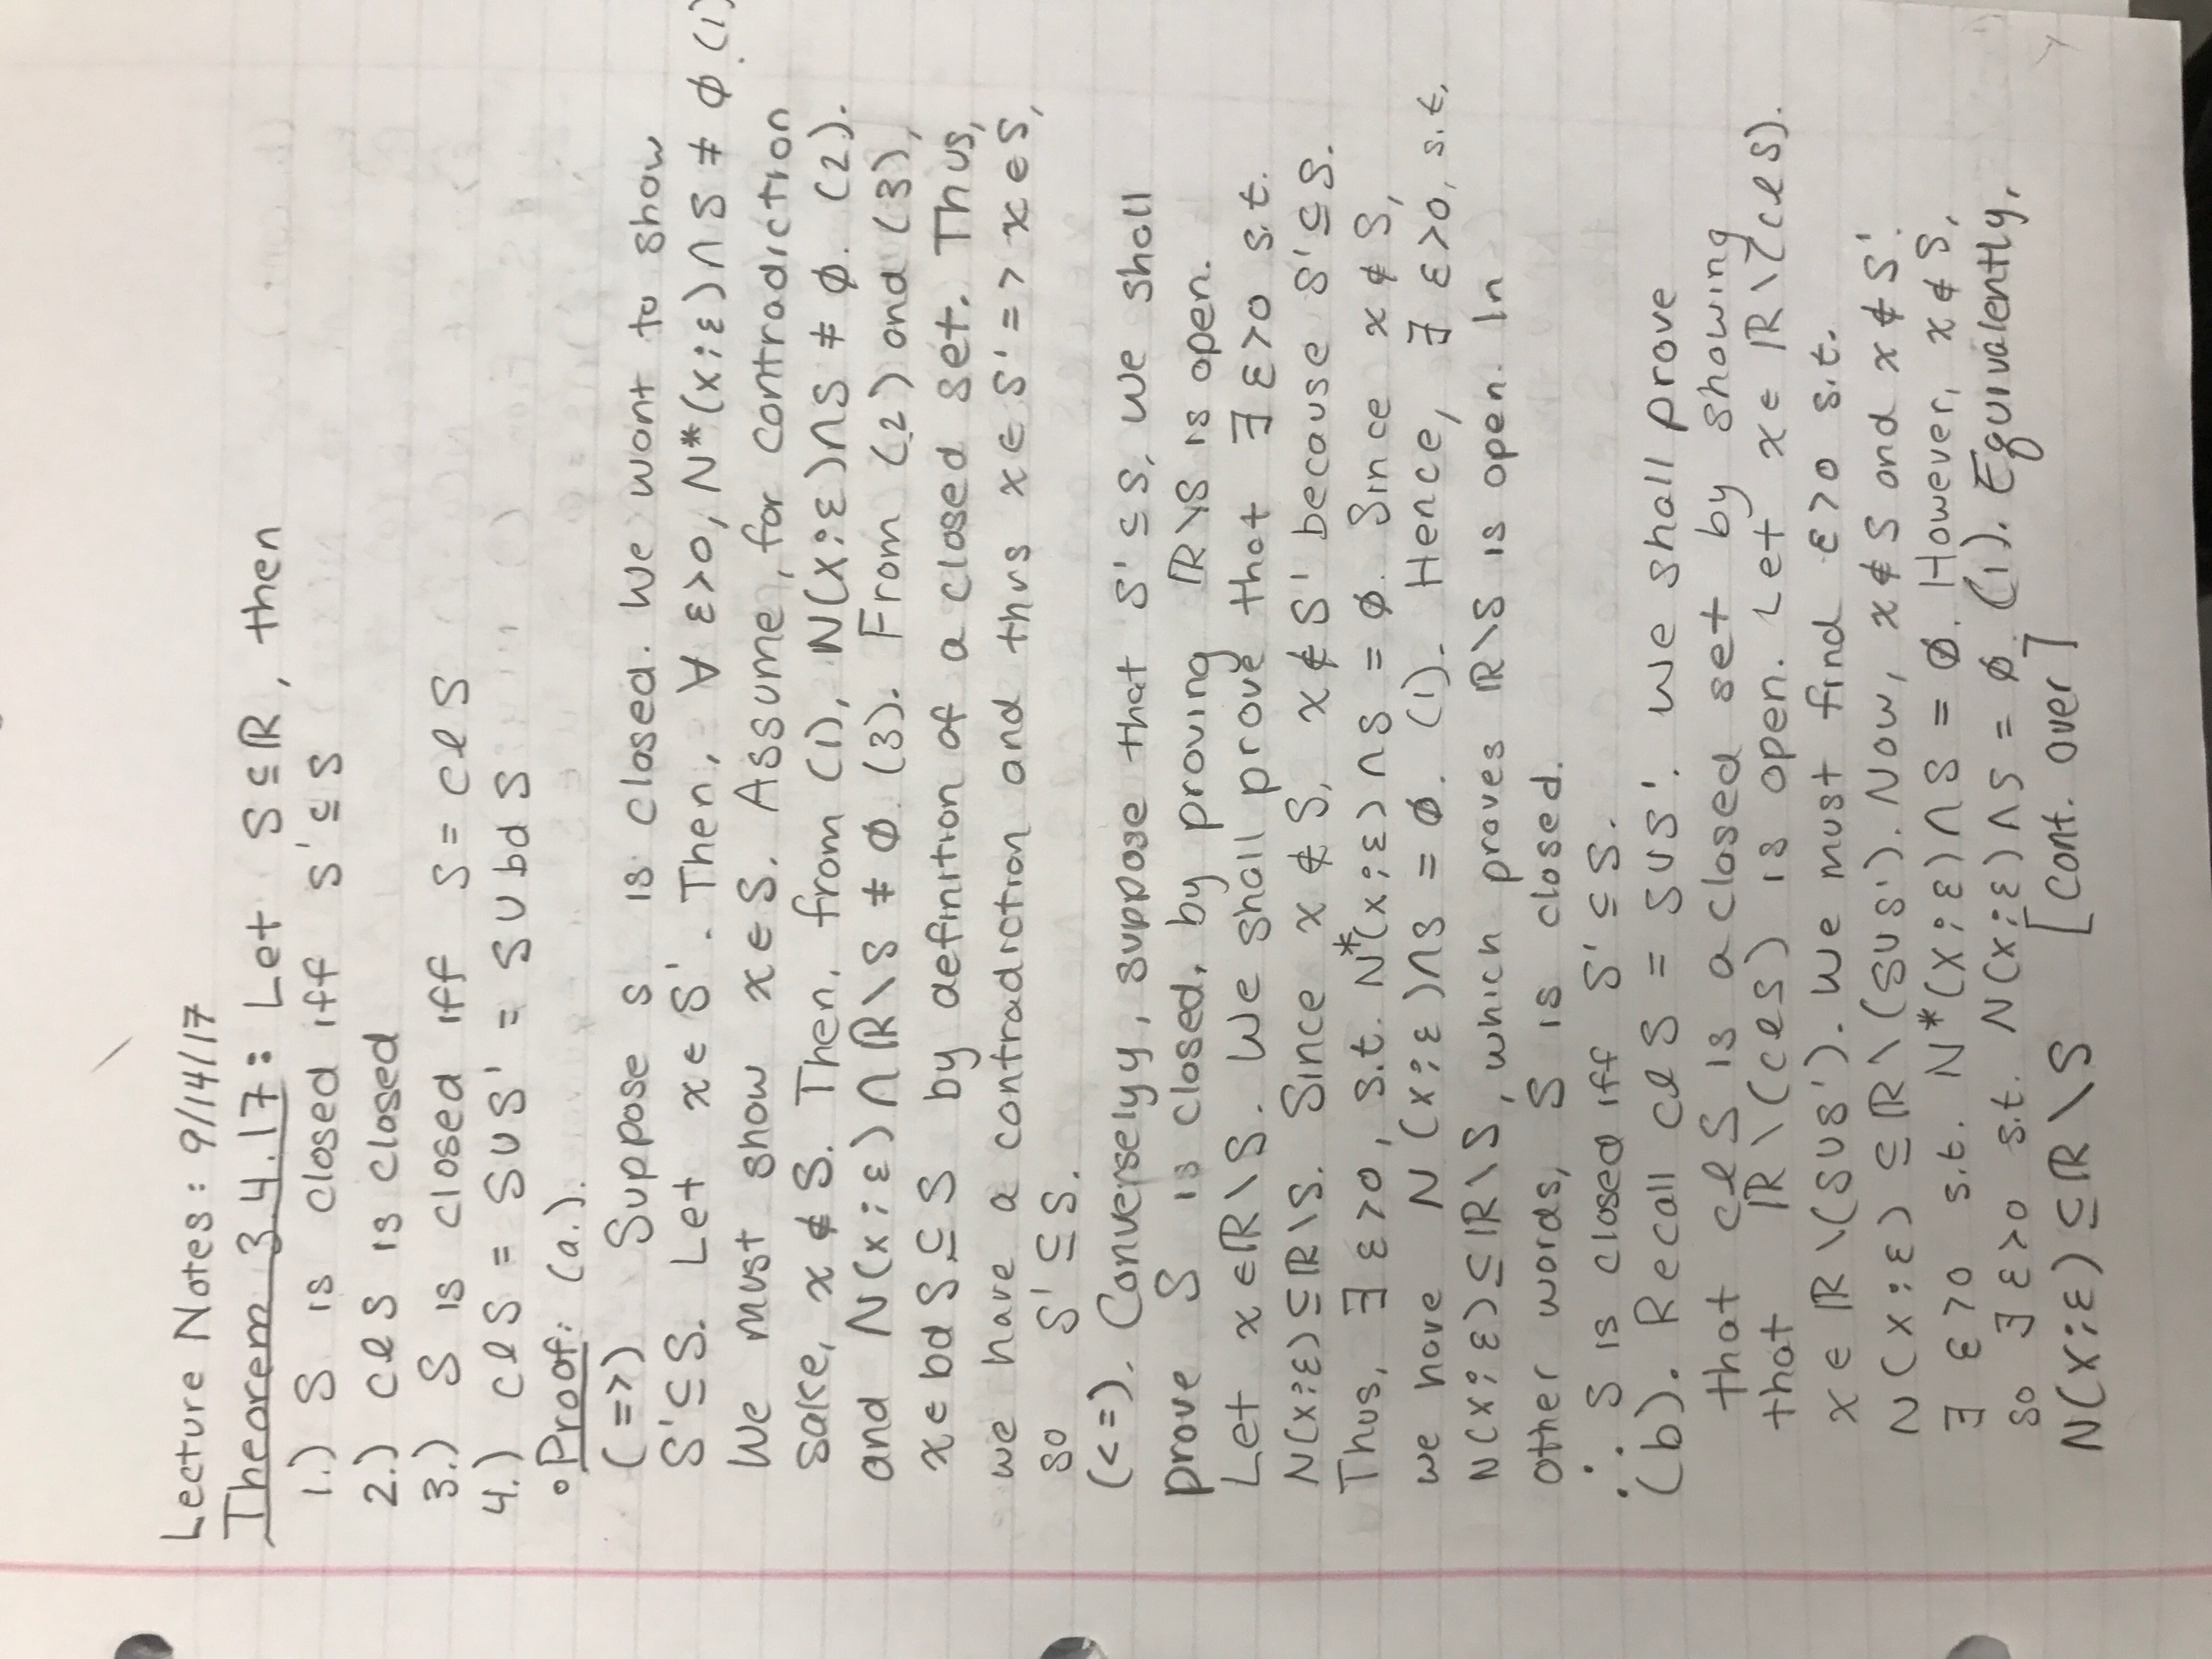 Lecture Notes: 9/14/17
Theorem 3.4.17: Let S ⊆ ℝ, then
1.) S is closed iff S' ⊆ S
2.) cl S is closed
3.) S is closed iff S = cl S
4.) cl S = S ∪ S' = S ∪ bd S
∘ Proof: (a.).
(=>) Suppose s is closed. We want to show
S' ⊆ S. Let x ∈ S'. Then, ∀ ε>0, N*(x;ε) ∩ S ≠ ∅. (1)
We must show x ∈ S. Assume, for contradiction
sake, x ∉ S. Then, from (1), N(x;ε) ∩ S ≠ ∅. (2).
and N(x;ε) ∩ ℝ\S ≠ ∅. (3). From (2) and (3),
x ∈ bd S ⊆ S by definition of a closed set. Thus,
we have a contradiction and thus x ∈ S' => x ∈ S,
so S' ⊆ S.
(<=). Converselyy, suppose that S' ⊆ S, We shall
prove S is closed, by proving ℝ\S is open.
Let x ∈ ℝ\S. We shall prove that ∃ ε>0 s.t.
N(x;ε) ⊆ ℝ\S. Since x ∉ S, x ∉ S' because S' ⊆ S.
Thus, ∃ ε>0, s.t. N*(x;ε) ∩ S = ∅. Since x ∉ S,
we have N(x;ε) ∩ S = ∅. (1). Hence, ∃ ε>0, s.t.
N(x;ε) ⊆ ℝ\S, which proves ℝ\S is open. In
other words, S is closed.
∴ S is closed iff S' ⊆ S.
(b). Recall cl S = S ∪ S'. We shall prove
that cl S is a closed set by showing
that ℝ\(cl S) is open. Let x ∈ ℝ\(cl S).
x ∈ ℝ\(S ∪ S'). We must find ε>0 s.t.
N(x;ε) ⊆ ℝ\(S ∪ S'). Now, x ∉ S and x ∉ S'.
∃ ε>0 s.t. N*(x;ε) ∩ S = ∅. However, x ∉ S,
so ∃ ε>0 s.t. N(x;ε) ∩ S = ∅. (1). Equivalently,
N(x;ε) ⊆ ℝ\S [cont. over]